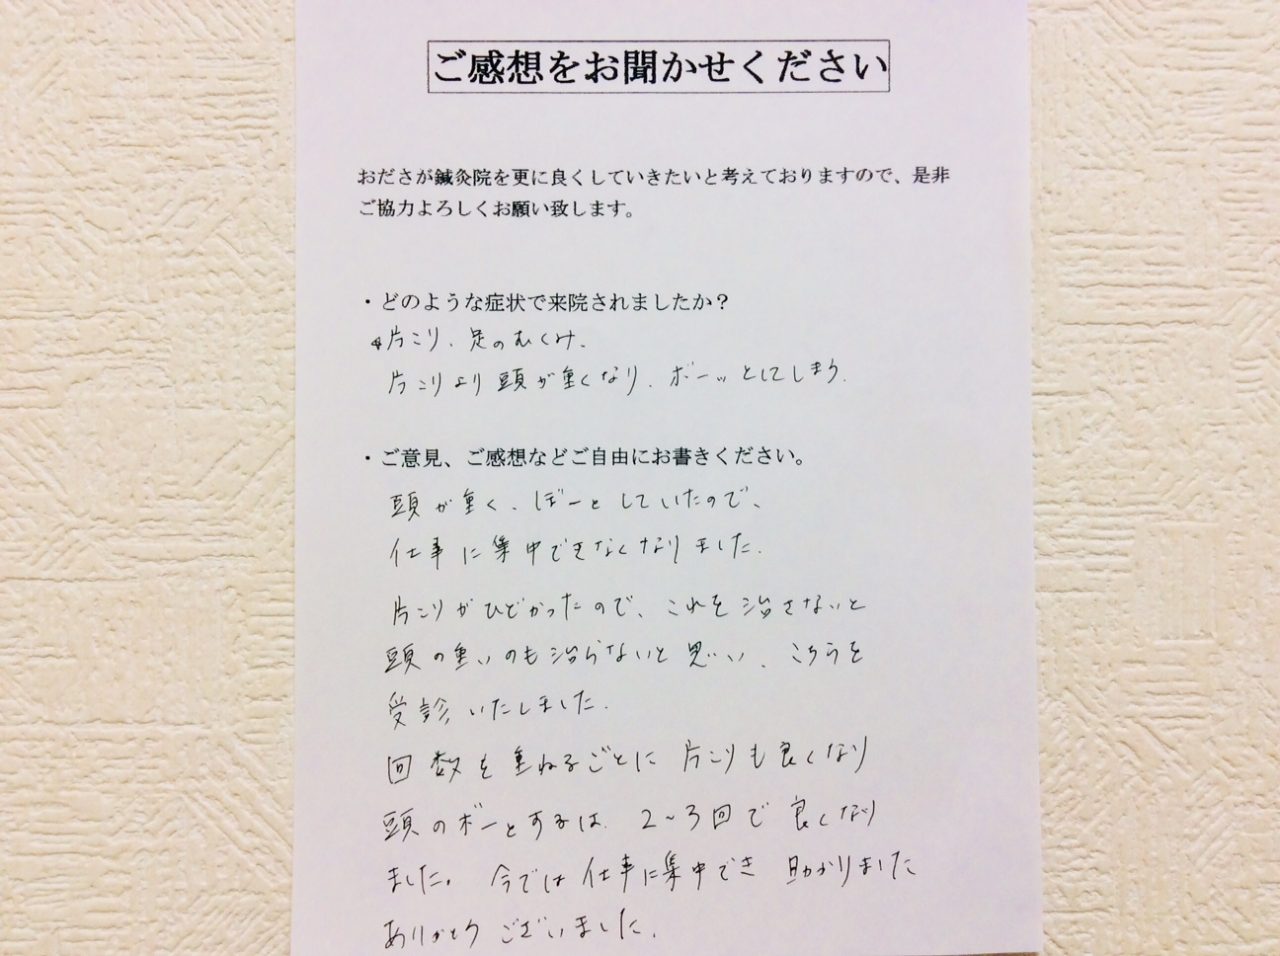 ご感想をお聞かせください
おださが鍼灸院を更に良くしていきたいと考えておりますので、是非
ご協力よろしくお願い致します。
・どのような症状で来院されましたか？
片こり、足のむくみ、
片こりより頭が重くなり、ボーッとしてしまう、
・ご意見、ご感想などご自由にお書きください。
頭が重く、ぼーとしていたので、
仕事に集中できなくなりました。
片こりがひどかったので、これを治さないと
頭の重いのも治らないと思い、こちらを
受診いたしました。
回数を重ねるごとに片こりも良くなり
頭のボーとするは 2〜3回で良くなり
ました。今では仕事に集中でき助かりました
ありがとうございました。